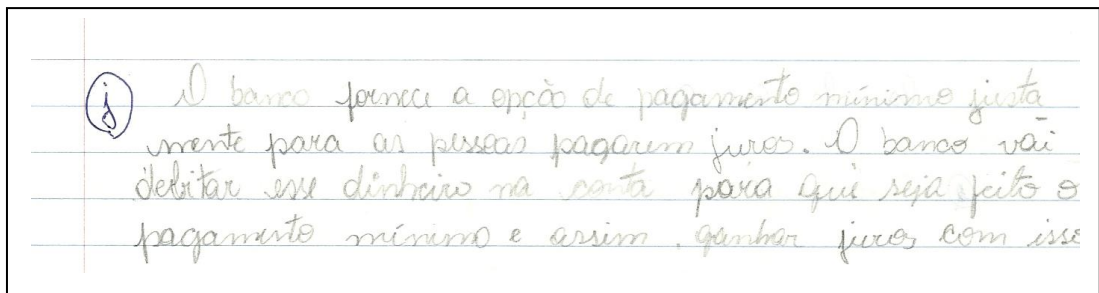 j O banco fornece a opção de pagamento mínimo justa
mente para as pessoas pagarem juros. O banco vai
debitar esse dinheiro na conta para que seja feito o
pagamento mínimo e assim, ganhar juros com isso